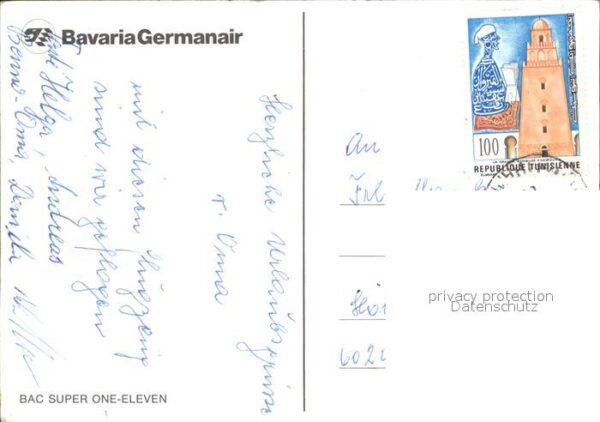 Bavaria Germanair
Herzliche Urlaubsgrüsse
v. Oma
mit diesem Flugzeug
sind wir geflogen
Tante Helga, Andreas
Benno-Oma, Daniela
BAC SUPER ONE-ELEVEN
100
REPUBLIQUE TUNISIENNE
An
Frl
privacy protection
Datenschutz
602